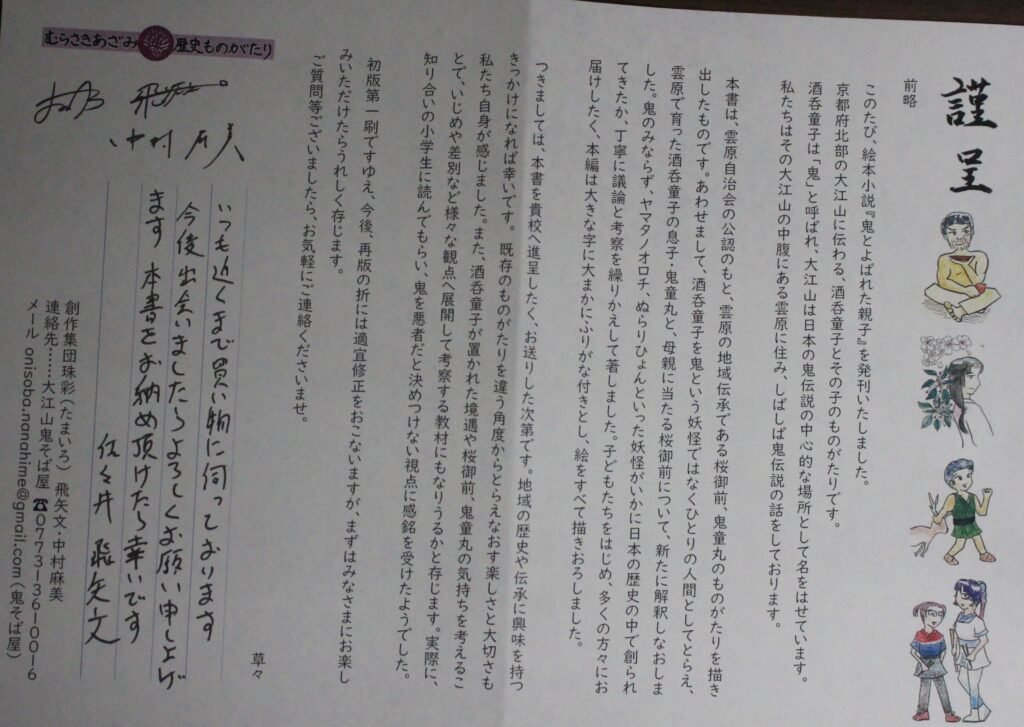 謹呈
前略
このたび、絵本小説『鬼とよばれた親子』を発刊いたしました。
京都府北部の大江山に伝わる、酒呑童子とその子のものがたりです。
酒呑童子は「鬼」と呼ばれ、大江山は日本の鬼伝説の中心的な場所として名をはせています。
私たちはその大江山の中腹にある雲原に住み、しばしば鬼伝説の話をしております。
本書は、雲原自治会の公認のもと、雲原の地域伝承である桜御前、鬼童丸のものがたりを描き
出したものです。あわせまして、酒呑童子を鬼という妖怪ではなくひとりの人間としてとらえ、
雲原で育った酒呑童子の息子・鬼童丸と、母親に当たる桜御前について、新たに解釈しなおしま
した。鬼のみならず、ヤマタノオロチ、ぬらりひょんといった妖怪がいかに日本の歴史の中で創られ
てきたか、丁寧に議論と考察を繰りかえして著しました。子どもたちをはじめ、多くの方々にお
届けしたく、本編は大きな字に大まかにふりがな付きとし、絵をすべて描きおろしました。
つきましては、本書を貴校へ進呈したく、お送りした次第です。地域の歴史や伝承に興味を持つ
きっかけになれば幸いです。既存のものがたりを違う角度からとらえなおす楽しさと大切さも
私たち自身が感じました。また、酒呑童子が置かれた境遇や桜御前、鬼童丸の気持ちを考えるこ
とで、いじめや差別など様々な観点へ展開して考察する教材にもなりうるかと存じます。実際に、
知り合いの小学生に読んでもらい、鬼を悪者だと決めつけない視点に感銘を受けたようでした。
初版第一刷ですゆえ、今後、再版の折には適宜修正をおこないますが、まずはみなさまにお楽し
みいただけたらうれしく存じます。
ご質問等ございましたら、お気軽にご連絡くださいませ。
草々
むらさきあざみ歴史ものがたり
中村麻美
いつも近くまで買い物に伺っております
今後出会いましたらよろしくお願い申し上げ
ます 本書をお納め頂けたら幸いです
佐々井 飛矢文
創作集団珠彩（たまいろ） 飛矢文・中村麻美
連絡先……大江山鬼そば屋 ☎0773-36-0016
メール onisoba.nanahime@gmail.com（鬼そば屋）